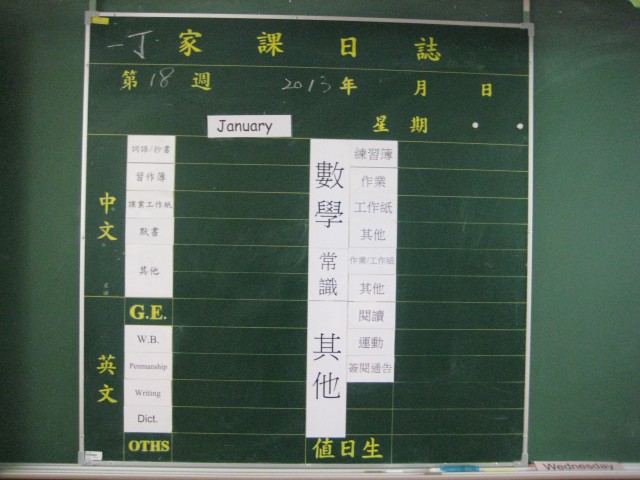 一丁 家課日誌
第 18 週 2013 年 月 日
January 星期
中文
詞語/抄書
習作簿
課業工作紙
默書
其他
英文
G.E.
W.B.
Penmanship
Writing
Dict.
OTHS
數學
練習簿
作業
工作紙
其他
常識
作業/工作紙
其他
其他
閱讀
運動
簽閱通告
值日生
Wednesday